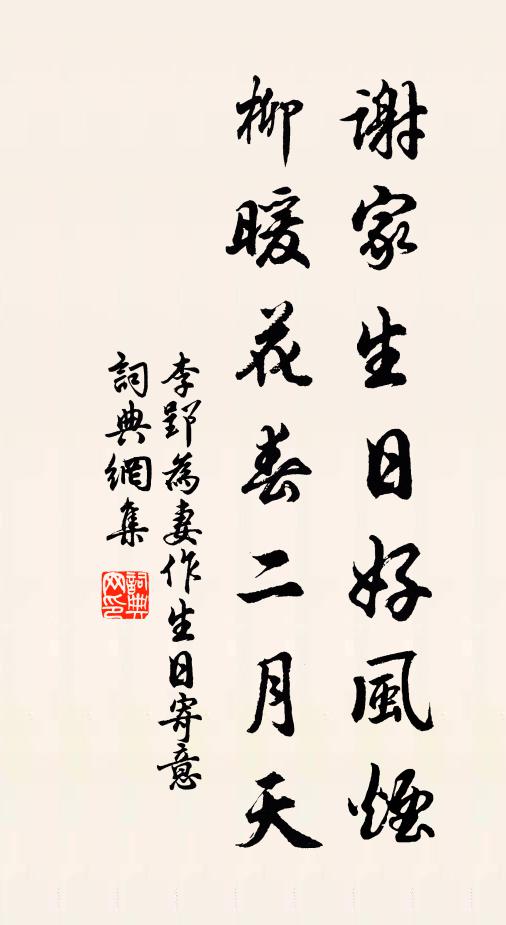 謝家生日好風煙
柳暖花春二月天
李郢為妻作生日寄意
詞典網集
詞典
网印